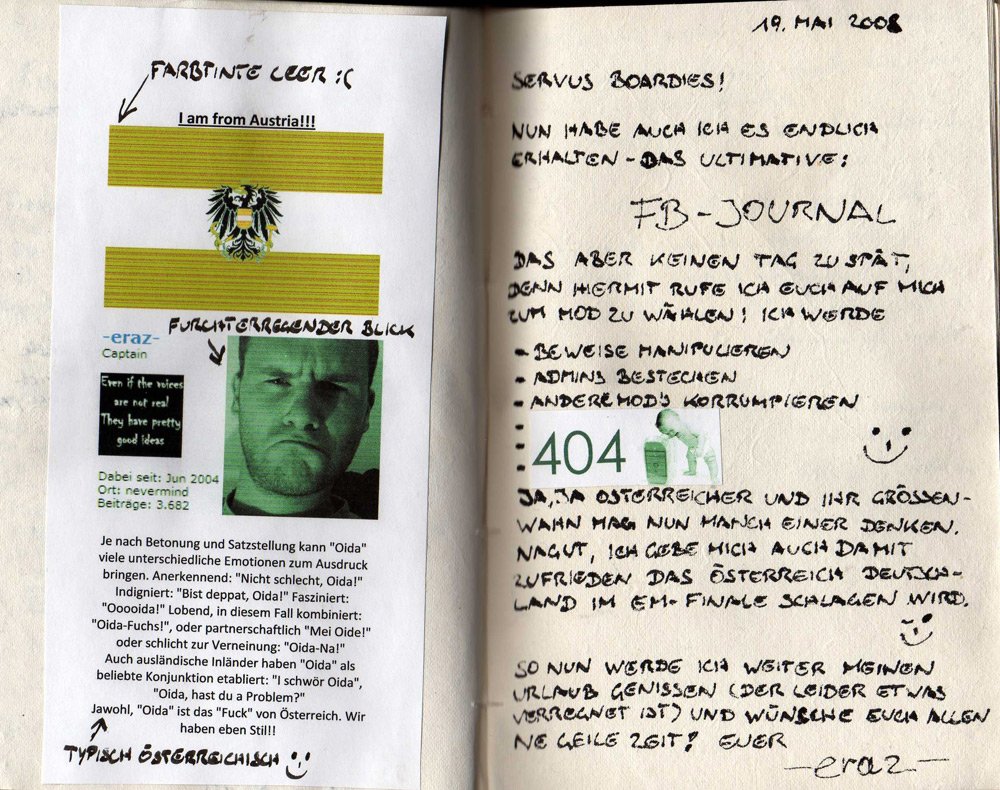 FARBTINTE LEER :(
I am from Austria!!!
FURCHTERREGENDER BLICK
-eraz-
Captain
Even if the voices
are not real
They have pretty
good ideas
Dabei seit: Jun 2004
Ort: nevermind
Beiträge: 3.682
Je nach Betonung und Satzstellung kann "Oida"
viele unterschiedliche Emotionen zum Ausdruck
bringen. Anerkennend: "Nicht schlecht, Oida!"
Indigniert: "Bist deppat, Oida!" Fasziniert:
"Ooooida!" Lobend, in diesem Fall kombiniert:
"Oida-Fuchs!", oder partnerschaftlich "Mei Oide!"
oder schlicht zur Verneinung: "Oida-Na!"
Auch ausländische Inländer haben "Oida" als
beliebte Konjunktion etabliert: "I schwör Oida",
"Oida, hast du a Problem?"
Jawohl, "Oida" ist das "Fuck" von Österreich. Wir
haben eben Stil!!
TYPISCH ÖSTERREICHISCH :)
19. MAI 2008
SERVUS BOARDIES!
NUN HABE AUCH ICH ES ENDLICH
ERHALTEN - DAS ULTIMATIVE:
FB-JOURNAL
DAS ABER KEINEN TAG ZU SPÄT,
DENN HIERMIT RUFE ICH EUCH AUF MICH
ZUM MOD ZU WÄHLEN! ICH WERDE
- BEWEISE MANIPULIEREN
- ADMINS BESTECHEN
- ANDERE MOD'S KORRUMPIEREN
404
JA, JA ÖSTERREICHER UND IHR GRÖSSEN-
WAHN MAG NUN MANCH EINER DENKEN.
NAGUT, ICH GEBE MICH AUCH DAMIT
ZUFRIEDEN DAS ÖSTERREICH DEUTSCH-
LAND IM EM-FINALE SCHLAGEN WIRD.
SO NUN WERDE ICH WEITER MEINEN
URLAUB GENISSEN (DER LEIDER ETWAS
VERREGNET IST) UND WÜNSCHE EUCH ALLEN
NE GEILE ZEIT! EUER
-eraz-